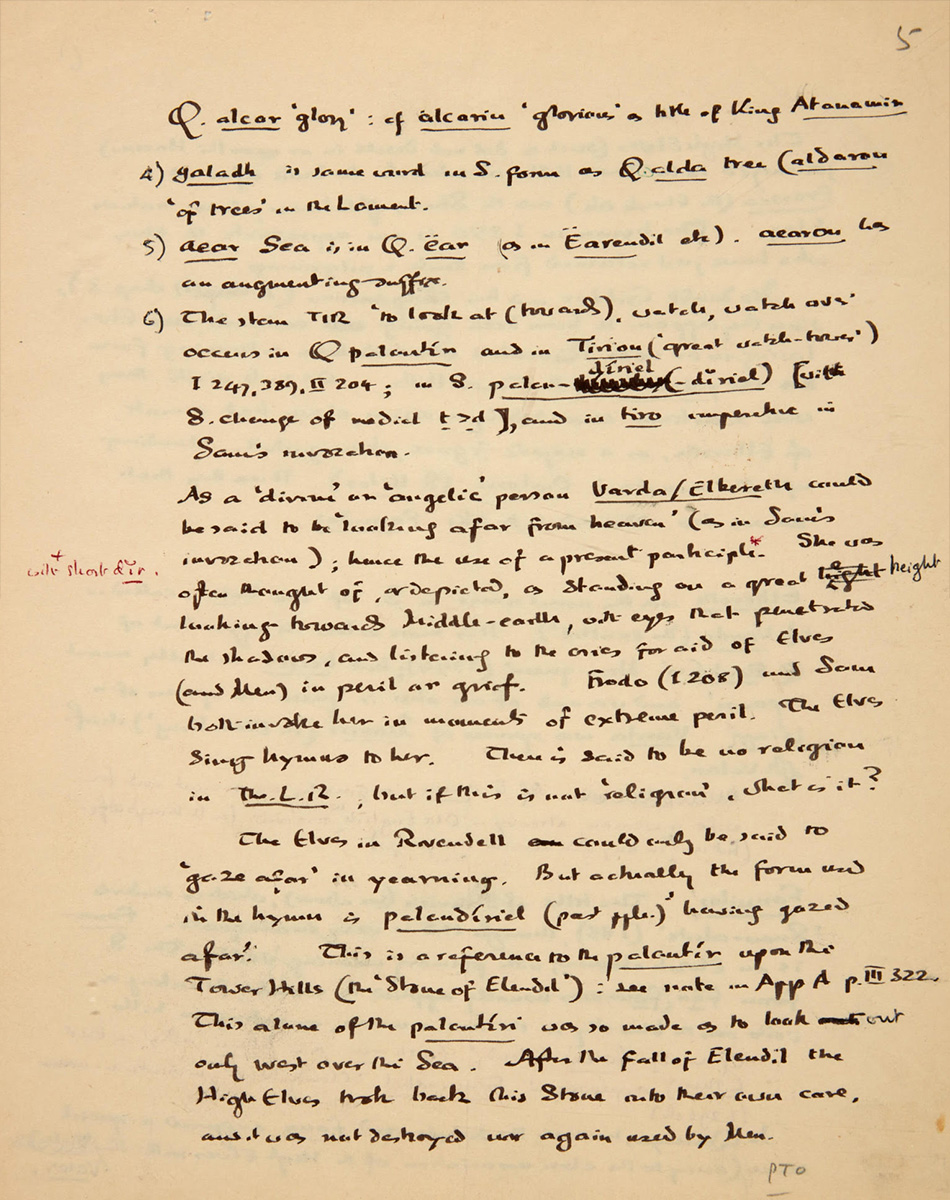 5
Q. alcar 'glory' : cf alcarin 'glorious' as title of King Atanamir
4) galadh is same word in S. form as Q. alda tree (aldaron
'of trees' in the Lament.
5) aear Sea is in Q. ëar (as in Ëarendil etc). aearon has
an augmenting suffix.
6) The stem TIR 'to look at (towards), watch, watch over'
occurs in Q palantír and in Tirion ('great watch-tower')
I 247, 389, II 204 ; in S. palan-díriel (-dīriel) [with
S. change of medial t > d ], and in tiro imperative in
Sam's invocation.
As a 'divine' or 'angelic' person Varda/Elbereth could
be said to be 'looking afar from heaven' (as in Sam's
invocation) ; hence the use of a present participle.* She was
+ with short dĭr.
often thought of, or depicted, as standing on a great height
looking towards Middle-earth, with eyes that penetrated
the shadows, and listening to the cries for aid of Elves
(and Men) in peril or grief. Frodo (I 208) and Sam
both invoke her in moments of extreme peril. The Elves
sing hymns to her. There is said to be no religion
in The L.R. , but if this is not 'religion', what is it?
The Elves in Rivendell could only be said to
'gaze afar' in yearning. But actually the form used
in the hymn is palandíriel (past pple.) 'having gazed
afar'. This is a reference to the palantír upon the
Tower Hills (the 'Stone of Elendil') : see note in App A p. III 322.
This alone of the palantíri was so made as to look out
only west over the Sea. After the fall of Elendil the
High Elves took back this Stone into their own care,
and it was not destroyed nor again used by Men.
PTO